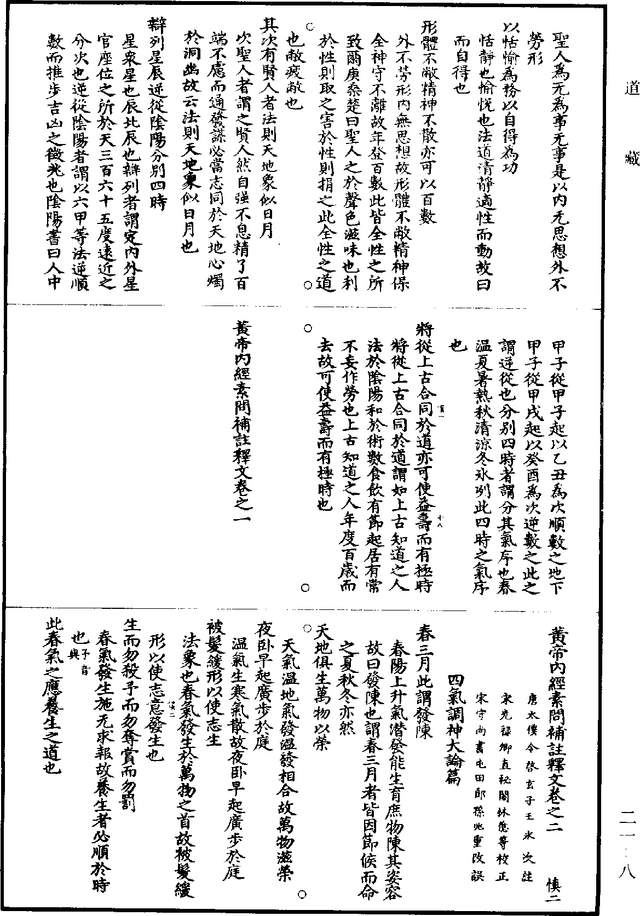 道藏
聖人為无為事无事是以内无思想外不
勞形
以恬愉為務以自得為功
恬静也愉悅也法道清静適性而動故曰
而自得也
形體不敝精神不散亦可以百數
外不勞形内無思想故形體不敝精神保
全神守不離故年登百數此皆全性之所
致爾庚桑楚曰聖人之於聲色滋味也利
於性則取之害於性則捐之此全性之道
也敝疲敝也
其次有賢人者法則天地象似日月
次聖人者謂之賢人然自強不息精了百
端不慮而通發謀必當志同於天地心燭
於洞幽故云法則天地象似日月也
辯列星辰逆從陰陽分別四時
星衆星也辰北辰也辯列者謂定内外星
官座位之所於天三百六十五度遠近之
分次也逆從陰陽者謂以六甲等法逆順
數而推步吉凶之徵兆也陰陽書曰人中
甲子從甲子起以乙丑為次順數之地下
甲子從甲戌起以癸酉為次逆數之此之
謂逆從也分別四時者謂分其氣序也春
温夏暑熱秋清涼冬冰冽此四時之氣序
也
將從上古合同於道亦可使益壽而有極時
將從上古合同於道謂如上古知道之人
法於陰陽和於術數食飲有節起居有常
不妄作勞也上古知道之人年度百歲而
去故可使益壽而有極時也
黃帝内經素問補註釋文卷之一
黃帝内經素問補註釋文卷之二 慎二
唐太僕令啓玄子王冰次註
宋光祿卿直秘閣林億等校正
宋守尚書屯田郎孫兆重改誤
四氣調神大論篇
春三月此謂發陳
春陽上升氣潛發能生育庶物陳其姿容
故曰發陳也謂春三月者皆因節候而命
之夏秋冬亦然
天地俱生萬物以榮
天氣温地氣發温發相合故萬物滋榮
夜卧早起廣步於庭
温氣生寒氣散故夜卧早起廣步於庭
被髮緩形以使志生
法象也春氣發生於萬物之首故被髮緩
形以使志意發生也
生而勿殺予而勿奪賞而勿罰
春氣發生施无求報故養生者必順於時
也予音與
此春氣之應養生之道也
二一～八